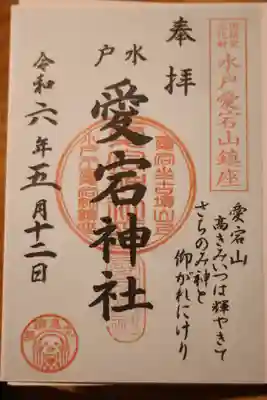 水戸愛宕山鎮座
奉拝
水戸
愛宕神社
令和六年五月十二日
愛宕山
高きみいつは輝やきて
さちのみ神と
仰がれにけり